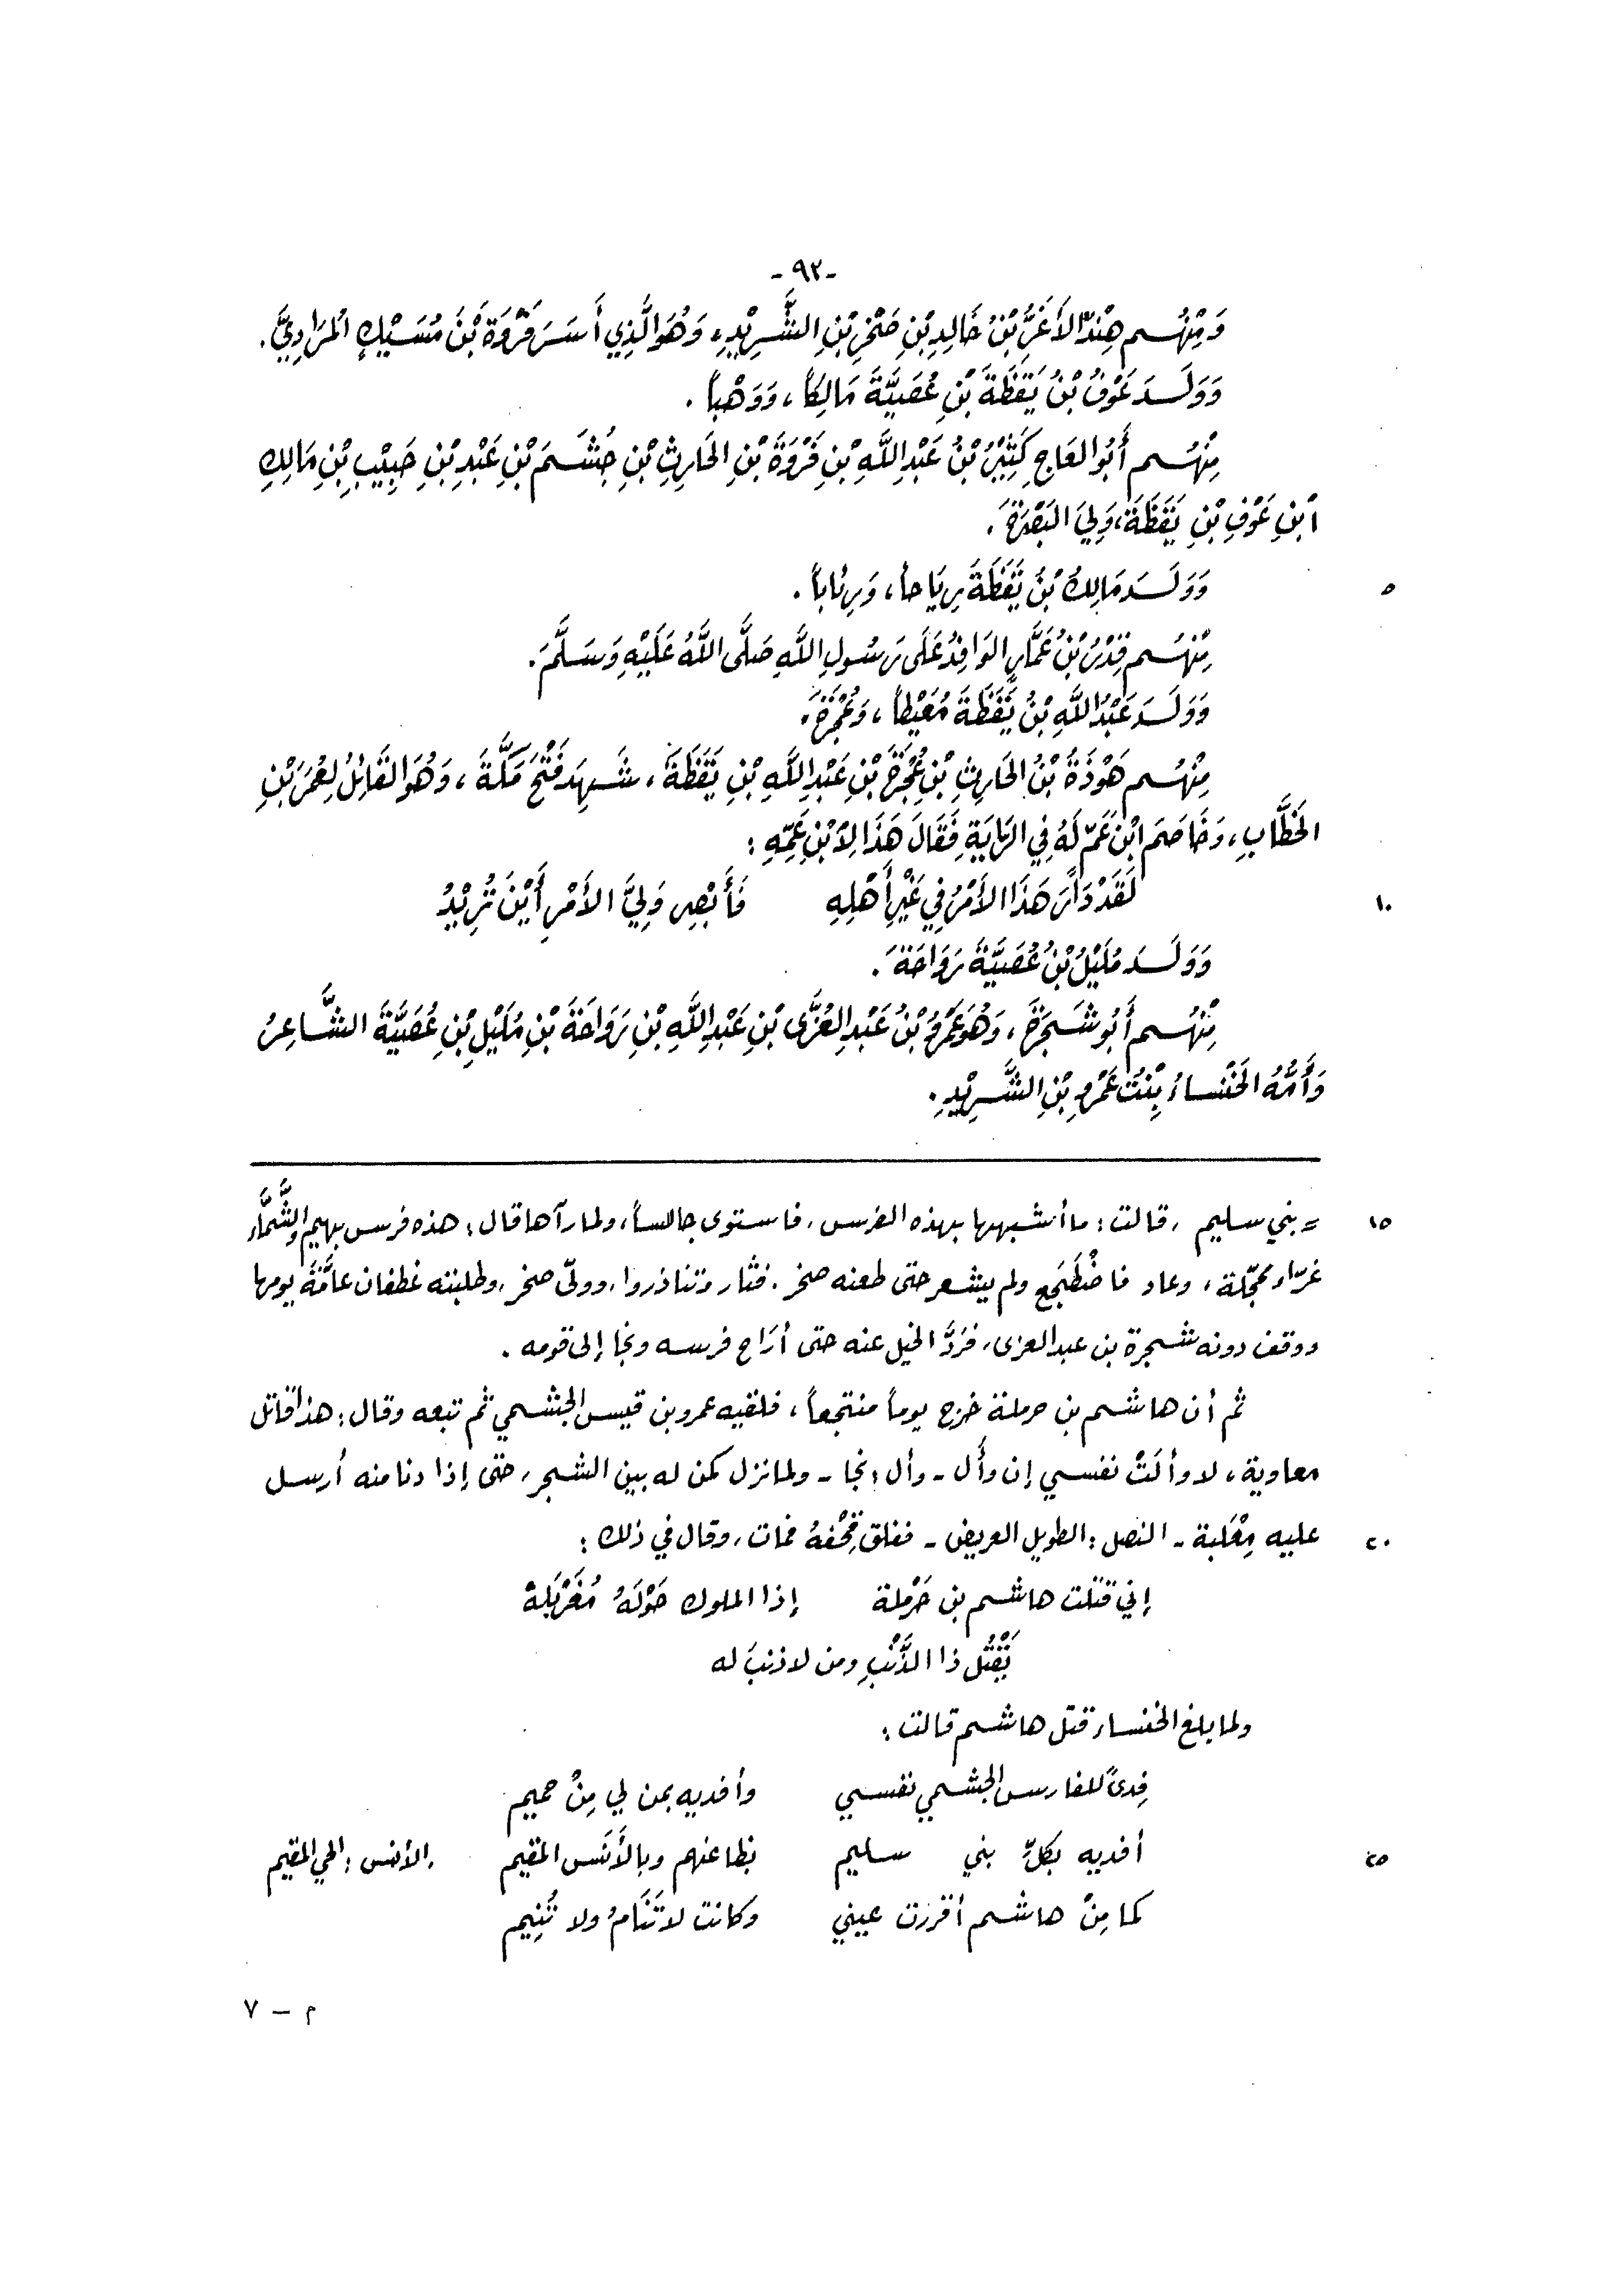 -٩٢-
وَمِنْهُم هِنْدُ الأَغَرُّ بْنُ خَالِدِ بْنِ صَخْرِ بْنِ الشَّرِيْدِ، وَهُوَ الَّذِي أَسَرَ فَرْوَةَ بْنَ مُسَيْكٍ المُرَادِيَّ.
وَوَلَدَ عَوْفُ بْنُ يَقَظَةَ بْنِ عُصَيَّةَ مَالِكاً، وَوَهْباً.
مِنْهُم أَبُو العَاجِ كَثِيْرُ بْنُ عَبْدِ اللَّهِ بْنِ فَرْوَةَ بْنِ الحَارِثِ بْنِ جُشَمَ بْنِ عَبْدِ بْنِ حَبِيْبِ بْنِ مَالِكِ
ابْنِ عَوْفِ بْنِ يَقَظَةَ، وَلِيَ البَصْرَةَ.
٥ وَوَلَدَ مَالِكُ بْنُ يَقَظَةَ رِيَاحاً، وَرِئَاباً.
مِنْهُم قِدْرُ بْنُ عَمَّارٍ الوَافِدُ عَلَى رَسُولِ اللَّهِ صَلَّى اللَّهُ عَلَيْهِ وَسَلَّمَ.
وَوَلَدَ عَبْدُ اللَّهِ بْنُ يَقَظَةَ مُعَيْطاً، وَعُجْرَةَ.
مِنْهُم هَوْذَةُ بْنُ الحَارِثِ بْنِ عُجْرَةَ بْنِ عَبْدِ اللَّهِ بْنِ يَقَظَةَ، شَهِدَ فَتْحَ مَكَّةَ، وَهُوَ القَائِلُ لِعُمَرَ بْنِ
الخَطَّابِ، وَخَاصَمَ ابْنَ عَمٍّ لَهُ فِي الرَّايَةِ فَقَالَ هَذَا لِابْنِ عَمِّهِ:
١٠ لَقَدْ دَارَ هَذَا الأَمْرُ فِي غَيْرِ أَهْلِهِ فَأَبْصِر وَلِيَّ الأَمْرِ أَيْنَ تُرِيْدُ
وَوَلَدَ مُلَيْلُ بْنُ عُصَيَّةَ رَوَاحَةَ.
مِنْهُم أَبُو شَجَرَةَ، وَهُوَ عَمْرُو بْنُ عَبْدِ العُزَّى بْنِ عَبْدِ اللَّهِ بْنِ رَوَاحَةَ بْنِ مُلَيْلِ بْنِ عُصَيَّةَ الشَّاعِرُ
وَأُمُّهُ الخَنْسَاءُ بِنْتُ عَمْرِو بْنِ الشَّرِيْدِ.
١٥ = بني سليم، قالت: ما أشبهها بهذه الفرس، فاستوى جالساً، ولما رآها قال: هذه فرس بهيم والشَّمَّاء
غرّاء محجّلة، وعاد فاضْطَجَع ولم يشعر حتى طعنه صخر. فثار وتناذروا، وولّى صخر، وطلبته غطفان عامَّةَ يومها
ووقف دونه شجرة بن عبد العزى، فرَدَّ الخيل عنه حتى أرَاح فرسه ونجا إلى قومه.
ثم أن هاشم بن حرملة خرج يوماً منتجعاً، فلقيه عمرو بن قيس الجشمي ثم تبعه وقال: هذا قاتل
معاوية، لا وألَتْ نفسي إن وأَل - وأل: نجا - ولما نزل كمن له بين الشجر، حتى إذا دنا منه أرسل
٢٠ عليه مِعْلَبة - النصل: الطويل العريض - ففلق قِحْفهُ فمات، وقال في ذلك:
إني قتلت هاشم بن حَرْملة إذا الملوك حَوْلَهُ مُغَرْبَلهْ
يَقْتُل ذا الذَّنْبِ ومن لا ذنبَ له
ولما بلغ الخنساء قتل هاشم قالت:
فِدىً للفارس الجشمي نفسي وأفديه بمن لي مِنْ حميم
٢٥ أفديه بكلّ بني سليم بظاعنهم وبالأَنَس المقيم ،الأنس: الحي المقيم
كما مِنْ هاشم أقررت عيني وكانت لا تَنَامُ ولا تُنِيم
م - ٧